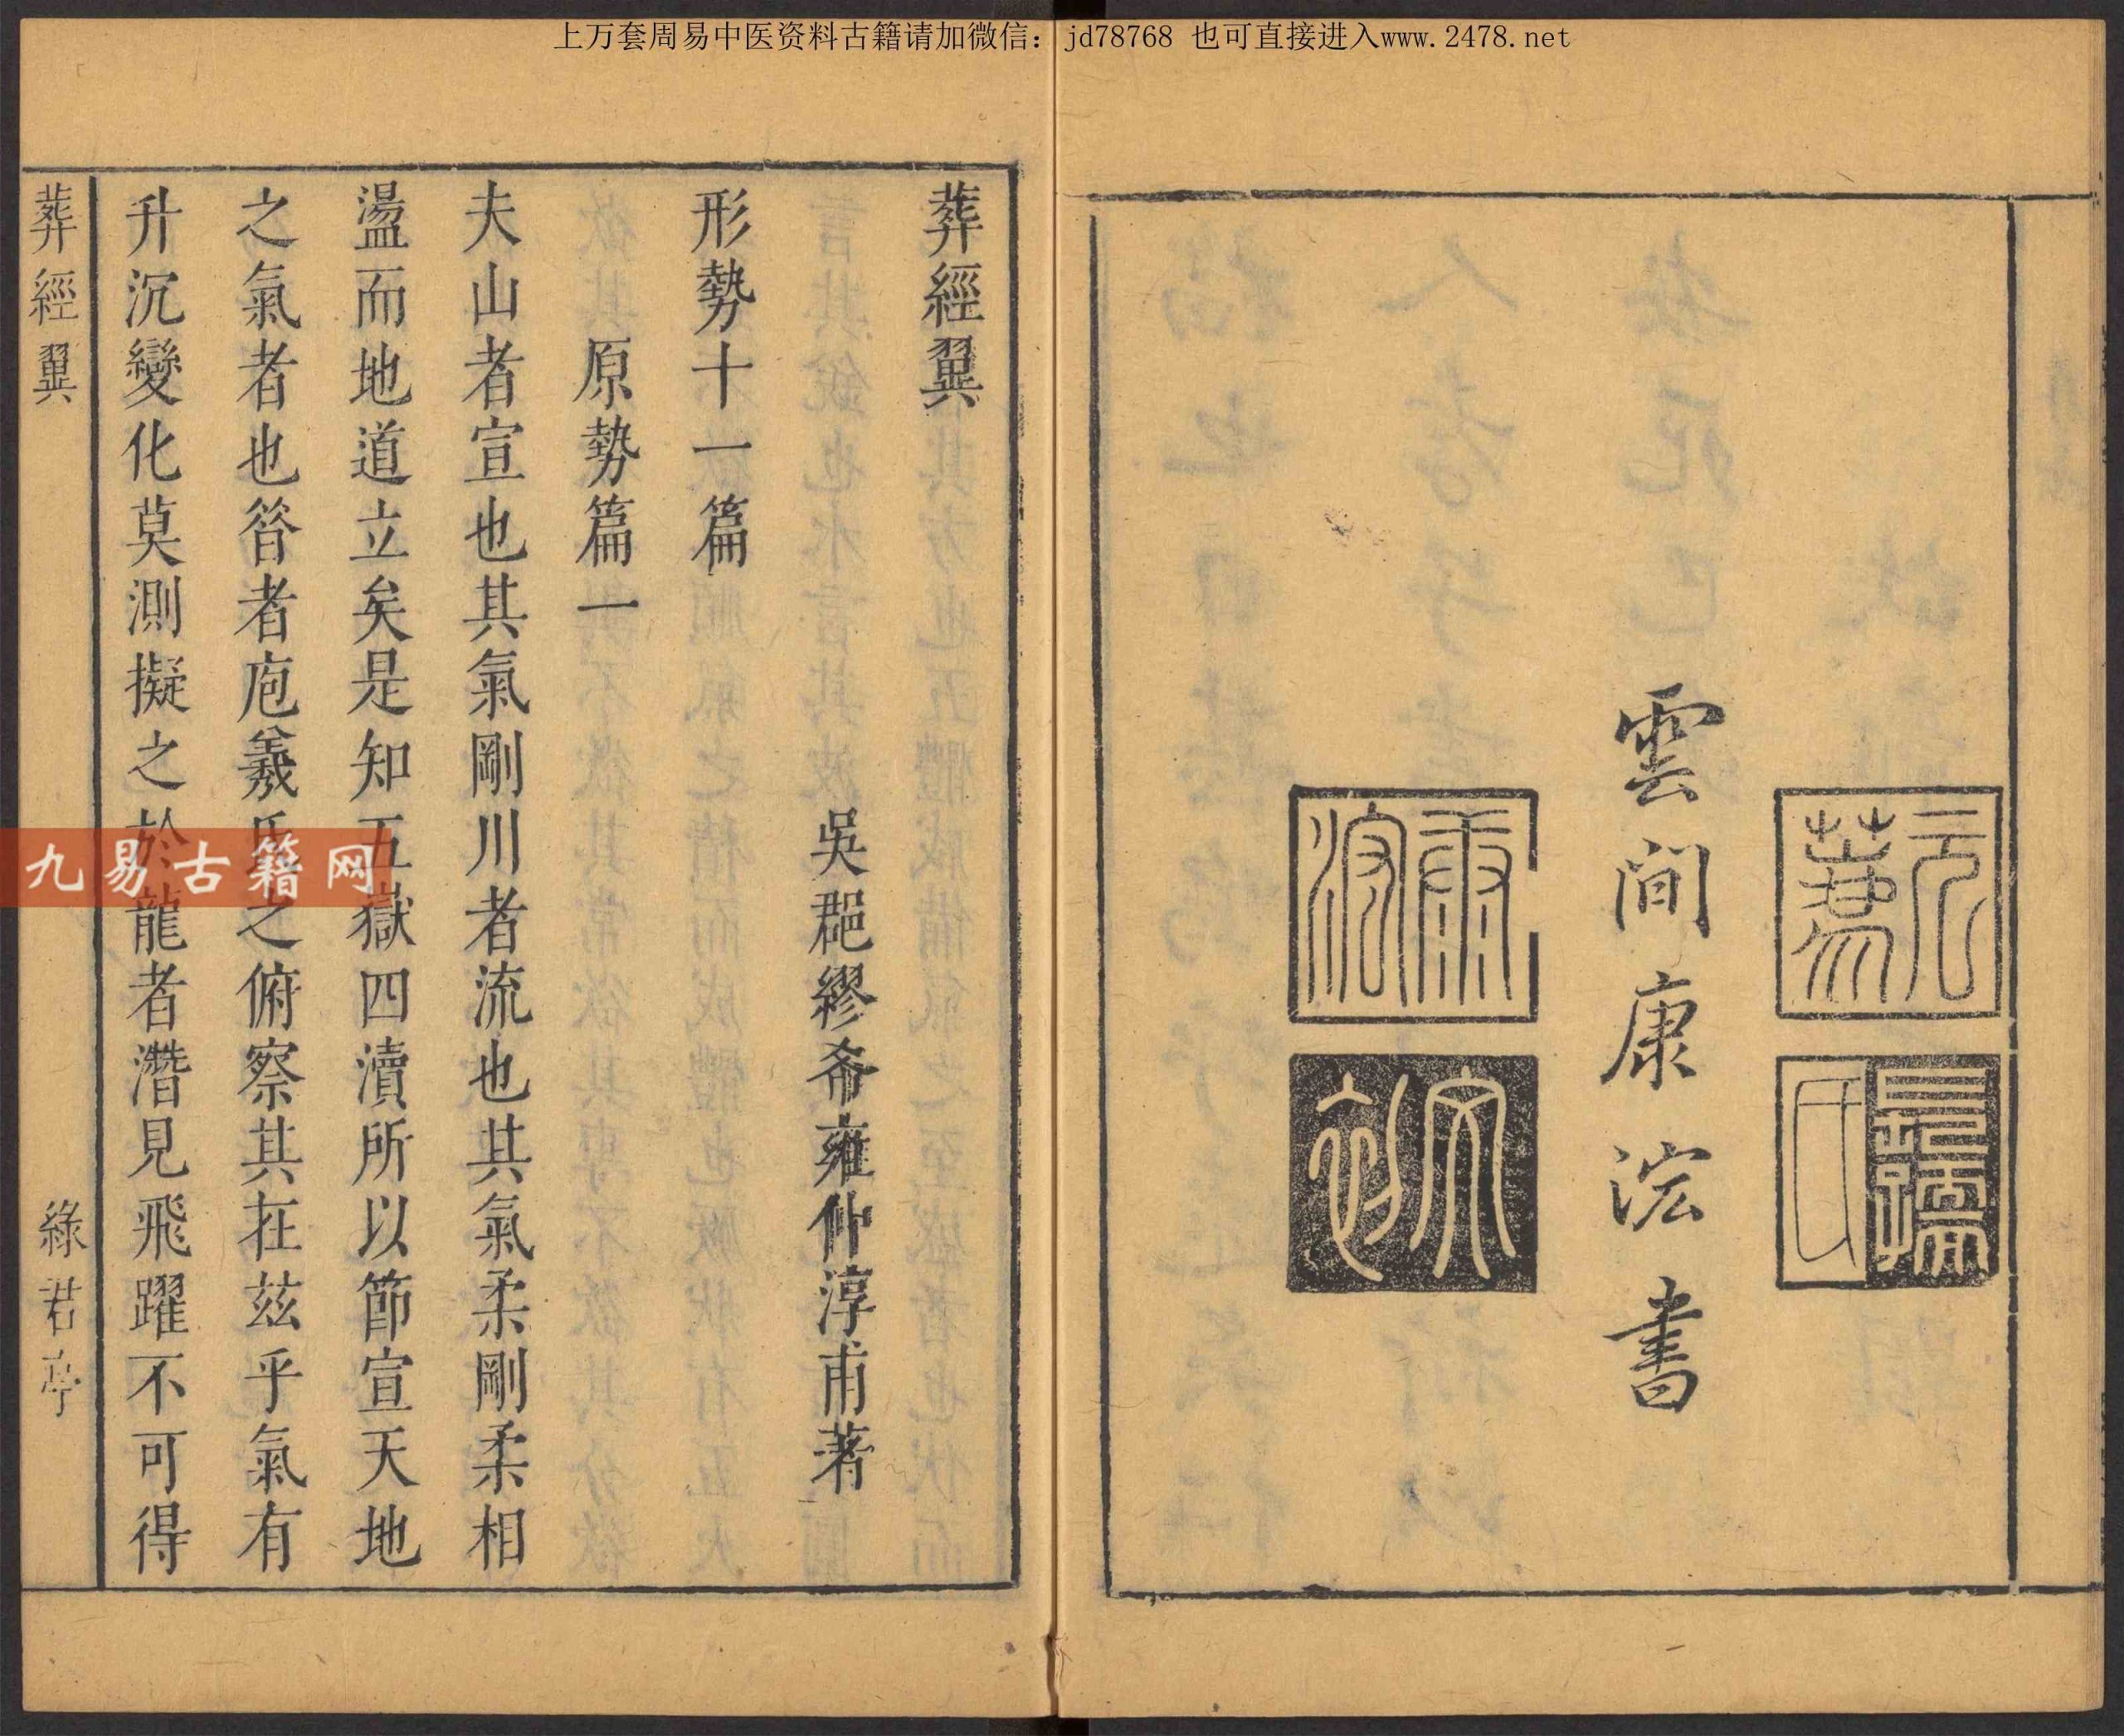 上万套周易中医资料古籍请加微信：jd78768 也可直接进入www.2478.net
雲間康浤書
葬經翼
吳郡繆希雍仲淳甫著
形勢十一篇
原勢篇一
夫山者宣也其氣剛川者流也其氣柔剛柔相
盪而地道立矣是知五嶽四瀆所以節宣天地
之氣者也昝者庖羲氏之俯察其在茲乎氣有
升沉變化莫測擬之於龍者潛見飛躍不可得
葬經翼
綠君亭
九易古籍网